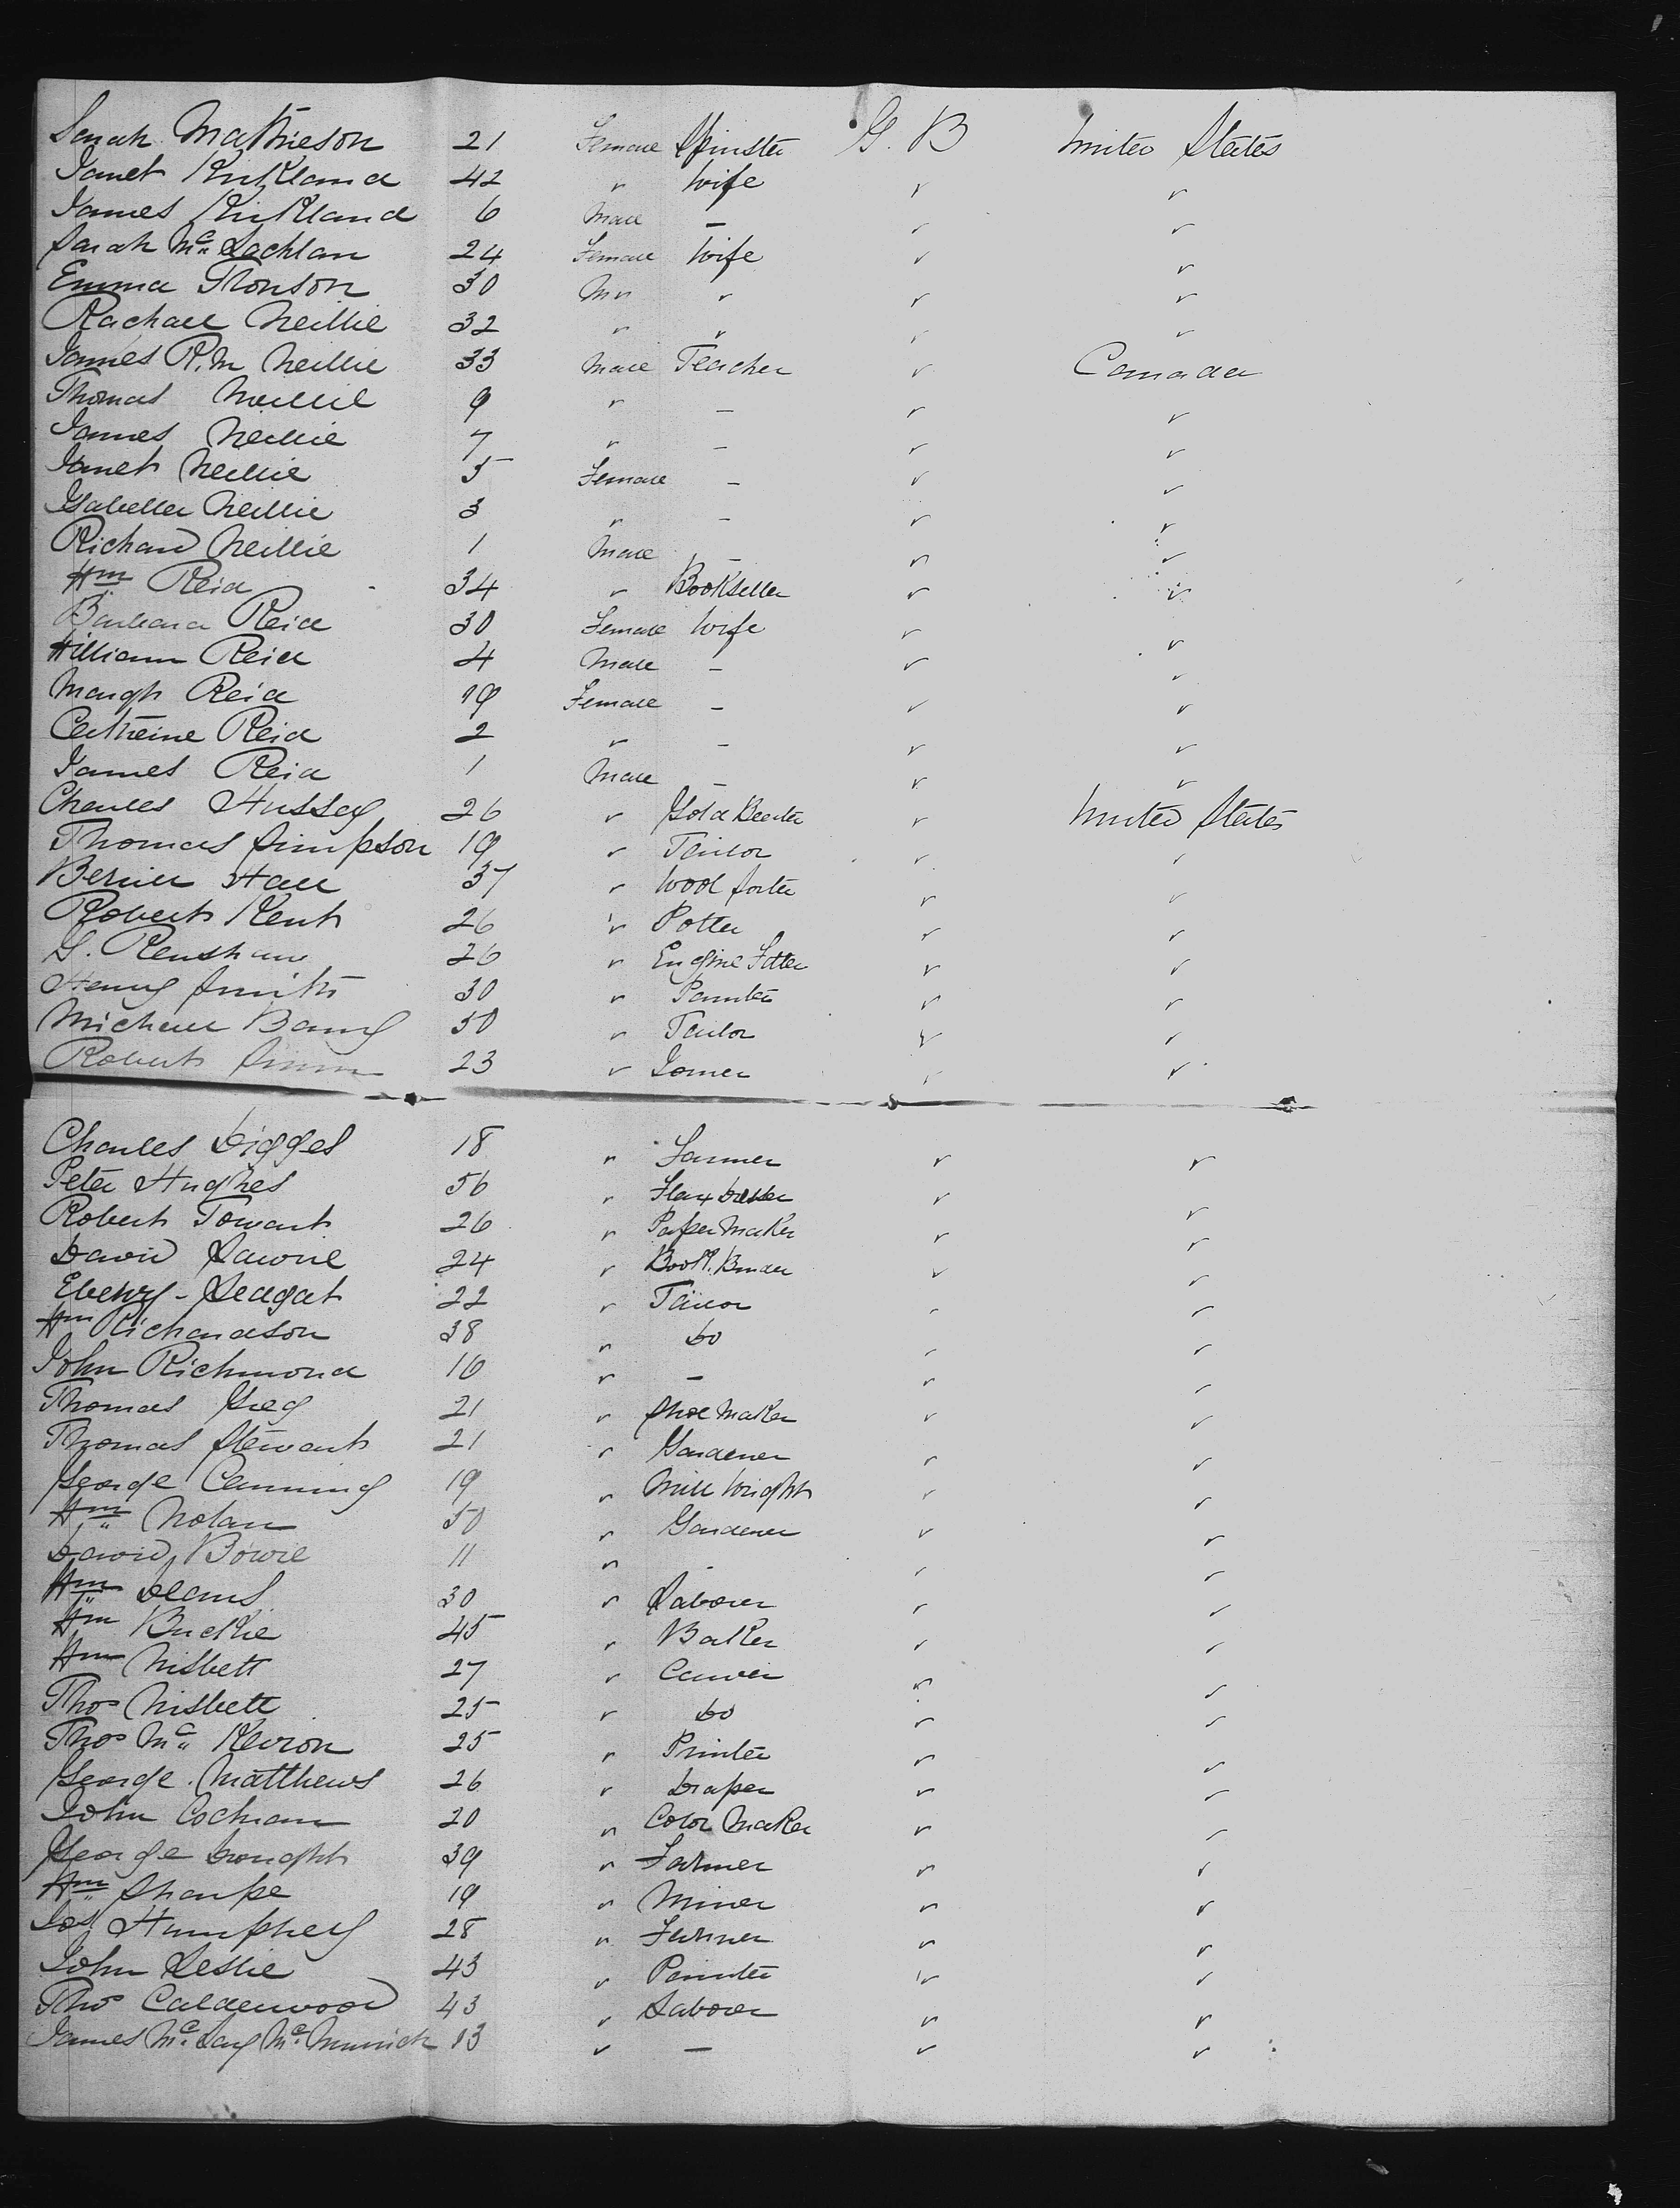 Sarah Mathieson 21 Female Spinster G. B United States
Janet Kirkland 42 " Wife " "
James Kirkland 6 Male — " "
Sarah Mc Lachlan 24 Female Wife " "
Emma Thonson 30 " " " "
Rachael Neillie 32 " " " "
James R. M Neillie 33 Male Teacher " Canada
Thomas Neillie 9 " — " "
James Neillie 7 " — " "
Janet Neillie 5 Female — " "
Isabella Neillie 3 " — " "
Richard Neillie 1 Male — " "
Wm Reid 34 " Bookseller " "
Barbara Reid 30 Female Wife " "
William Reid 4 Male — " "
Margh Reid 19 Female — " "
Catheine Reid 2 " — " "
James Reid 1 Male — " "
Charles Hussey 26 " Gold Beater " United States
Thomas Simpson 19 " Tailor " "
Hall 37 " Wool Sorter " "
Robert Kent 26 " Potter " "
G. Renshaw 26 " Engine Fitter " "
Henry Smith 30 " Painter " "
Michael 50 " Tailor " "
Robert 23 " Joiner " "
Charles Digges 18 " Farmer " "
Peter Hughes 56 " Flax Dresser " "
Robert Towart 26 " Paper Maker " "
David Lawrie 24 " Book Binder " "
Leagat 22 " Tailor " "
Wm Richardson 38 " Do " "
John Richmond 16 " — " "
Thomas Greg 21 " Shoe Maker " "
Thomas Stewart 21 " Gardener " "
George Canning 19 " Mill Wright " "
Wm Nolan 50 " Gardener " "
David Bowie 11 " — " "
Wm Deans 30 " Laborer " "
Wm Buckie 45 " Baker " "
Wm Nisbett 27 " Carver " "
Thos Nisbett 25 " Do " "
Thos Mc Kevron 25 " Printer " "
George Matthews 26 " Draper " "
John Cochran 20 " Color Maker " "
George 39 " Farmer " "
Wm Sharpe 19 " Miner " "
Jos Humphrey 28 " Farmer " "
John Leslie 43 " Painter " "
Thos Calderwood 43 " Laborer " "
James Mc Lay Mc Munich 13 " — " "